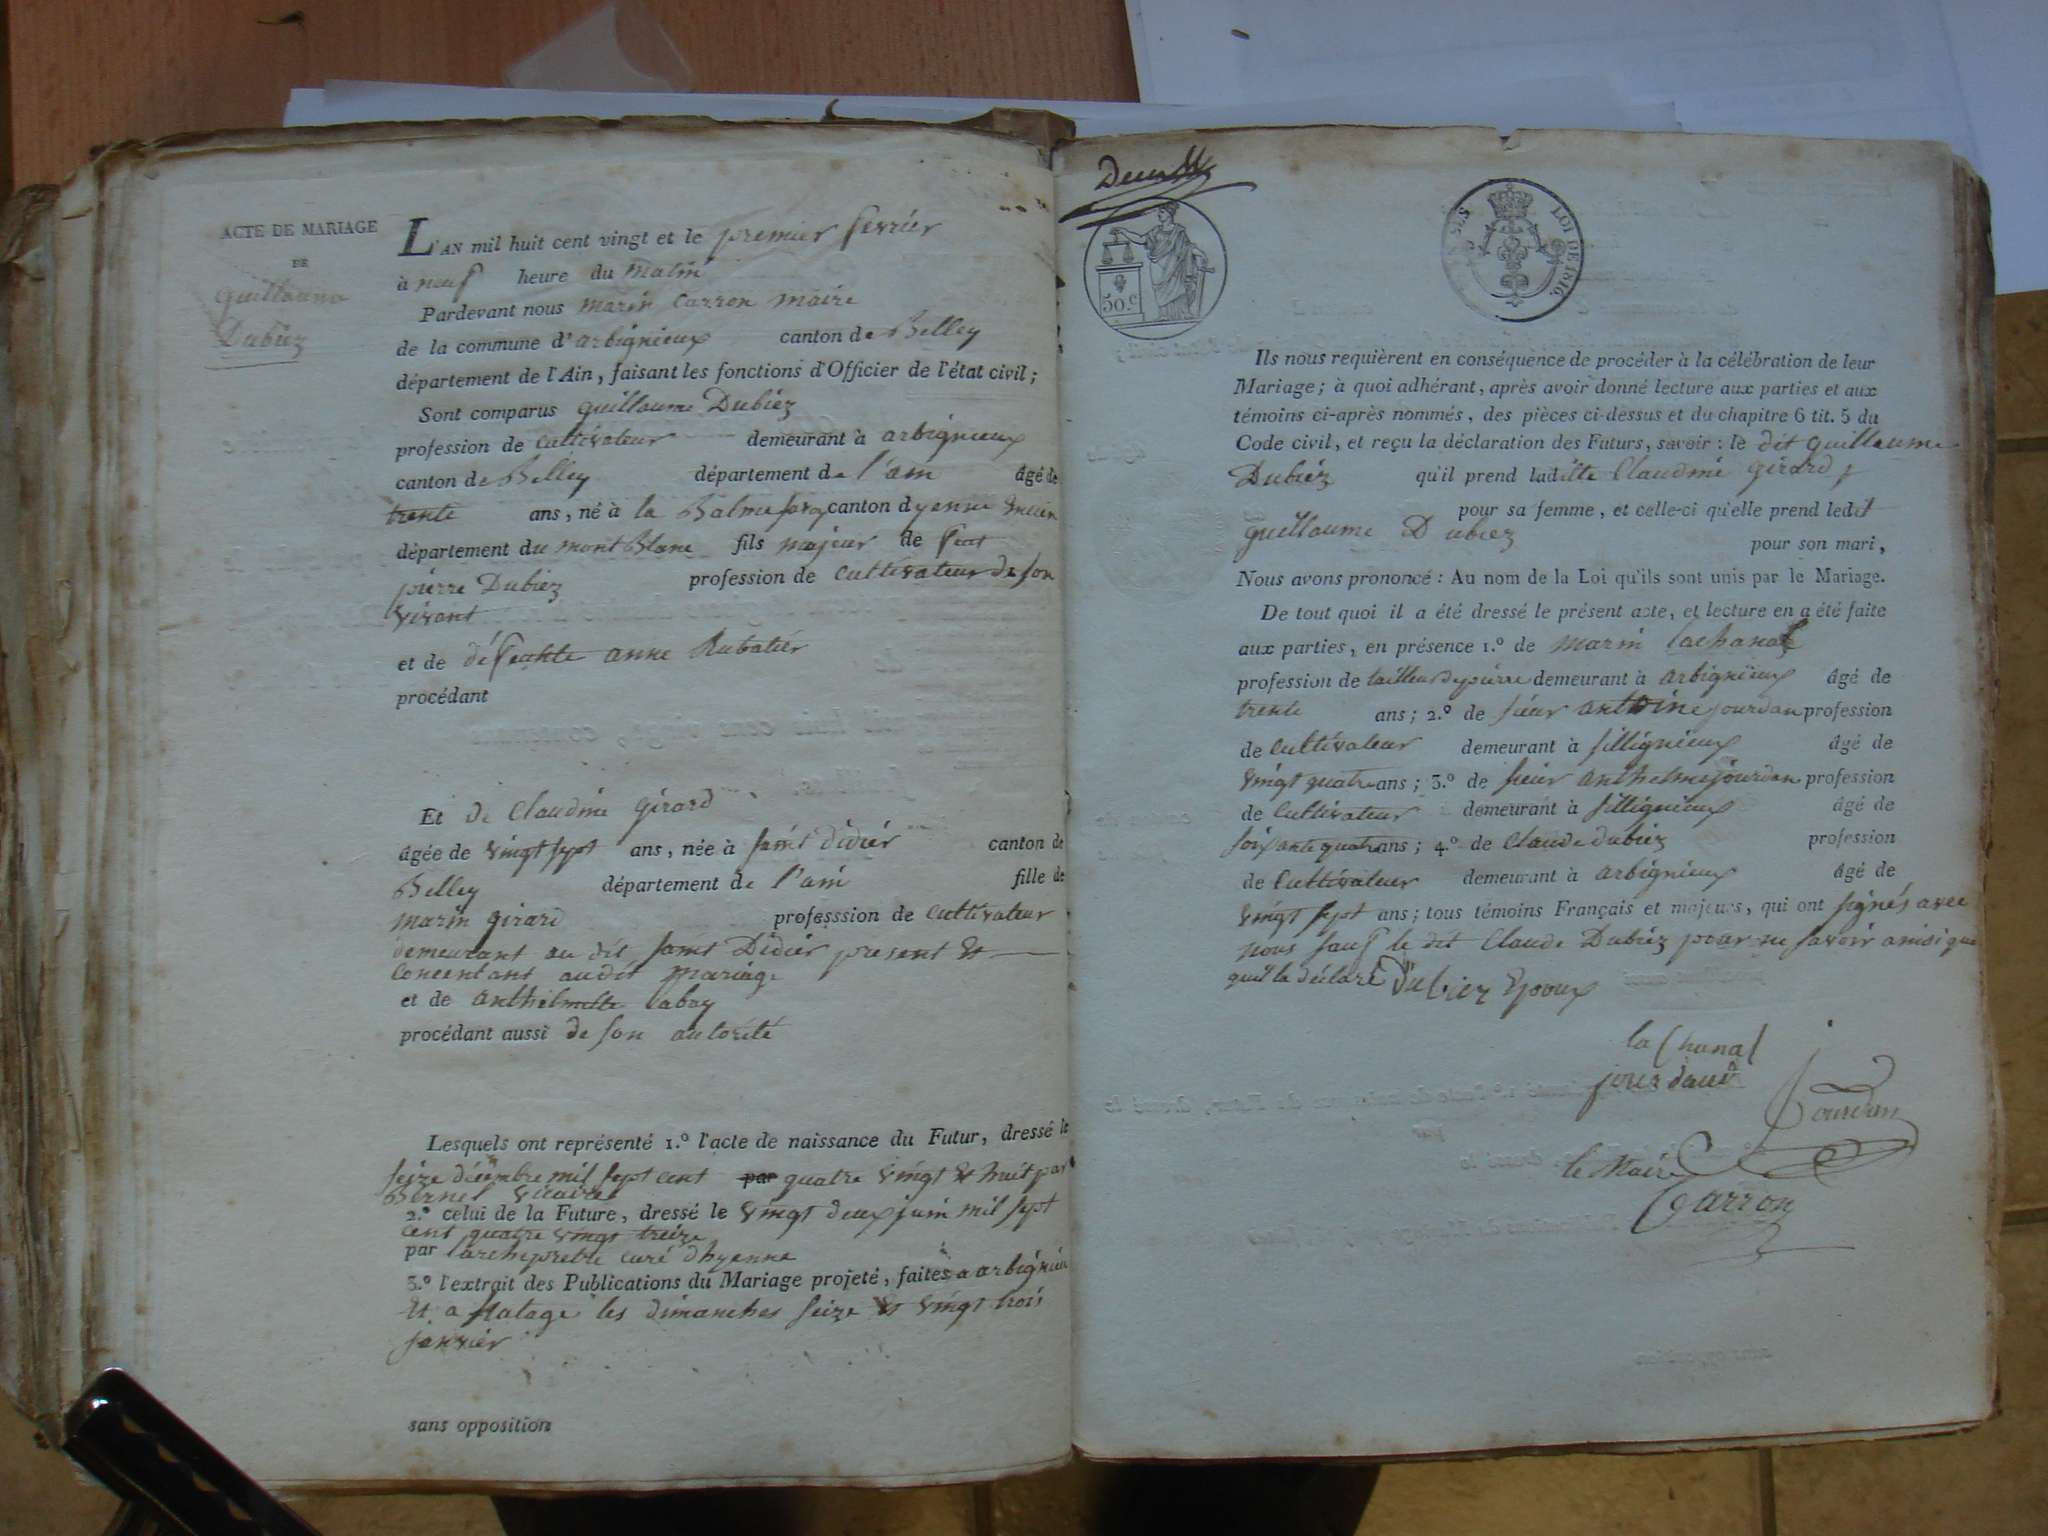 ACTE DE MARIAGE
DE
guillaume
Dubiez
L'AN mil huit cent vingt et le premier fevrier
à neuf heure du matin
Pardevant nous marin Carron maire
de la commune d'arbignieux canton de Belley
département de l'Ain, faisant les fonctions d'Officier de l'état civil;
Sont comparus guillaume Dubiez
profession de cultivateur demeurant à arbignieux
canton de Belley département de l'ain âgé de
trente ans, né à la Balme canton dyenne
département du mont Blanc fils majeur de feut
pierre Dubiez profession de cultivateur de son
vivant
et de défeunte anne Rubatier
procédant
Et de Claudine girard
âgée de vingt sept ans, née à saint didier canton de
Belley département de l'ain fille de
marin girard professsion de cultivateur
demeurant au dit saint Didier present et
concentant audit mariage
et de anthelmette labay
procédant aussi de son autorité
Lesquels ont représenté 1.º l'acte de naissance du Futur, dressé le
seize décembre mil sept cent par quatre vingt et huit par
Bernel vicaire
2.º celui de la Future, dressé le vingt deux juin mil sept
cent quatre vingt treize
par larchipretre curé dhyenne
3.º l'extrait des Publications du Mariage projeté, faites a arbignieu
et a les dimanches seize et vingt trois
janvier
sans opposition
50.c
LOI DE 1816.
Ils nous requièrent en conséquence de procéder à la célébration de leur
Mariage; à quoi adhérant, après avoir donné lecture aux parties et aux
témoins ci-après nommés, des pièces ci-dessus et du chapitre 6 tit. 5 du
Code civil, et reçu la déclaration des Futurs, savoir: le dit guillaume
Dubiéz qu'il prend ladite Claudine girard
pour sa femme, et celle-ci qu'elle prend ledit
guillaume Dubiez pour son mari,
Nous avons prononcé: Au nom de la Loi qu'ils sont unis par le Mariage.
De tout quoi il a été dressé le présent acte, et lecture en a été faite
aux parties, en présence 1.º de marin lachanal
profession de tailleur de pierre demeurant à arbignieux âgé de
trente ans; 2.º de sieur antoine jourdan profession
de cultivateur demeurant à sillignieux âgé de
vingt quatre ans; 3.º de sieur anthelme jourdan profession
de cultivateur demeurant à sillignieux âgé de
soixante quatre ans; 4.º de Claude dubiez profession
de cultivateur demeurant à arbignieux âgé de
vingt sept ans; tous témoins Français et majeurs, qui ont signés avec
nous sauf le dit Claude Dubiez pour ne savoir ainsi que
quil la déclaré Dubiez Epoux
la Chanal
jourdan
Jourdan
le Maire
Carron